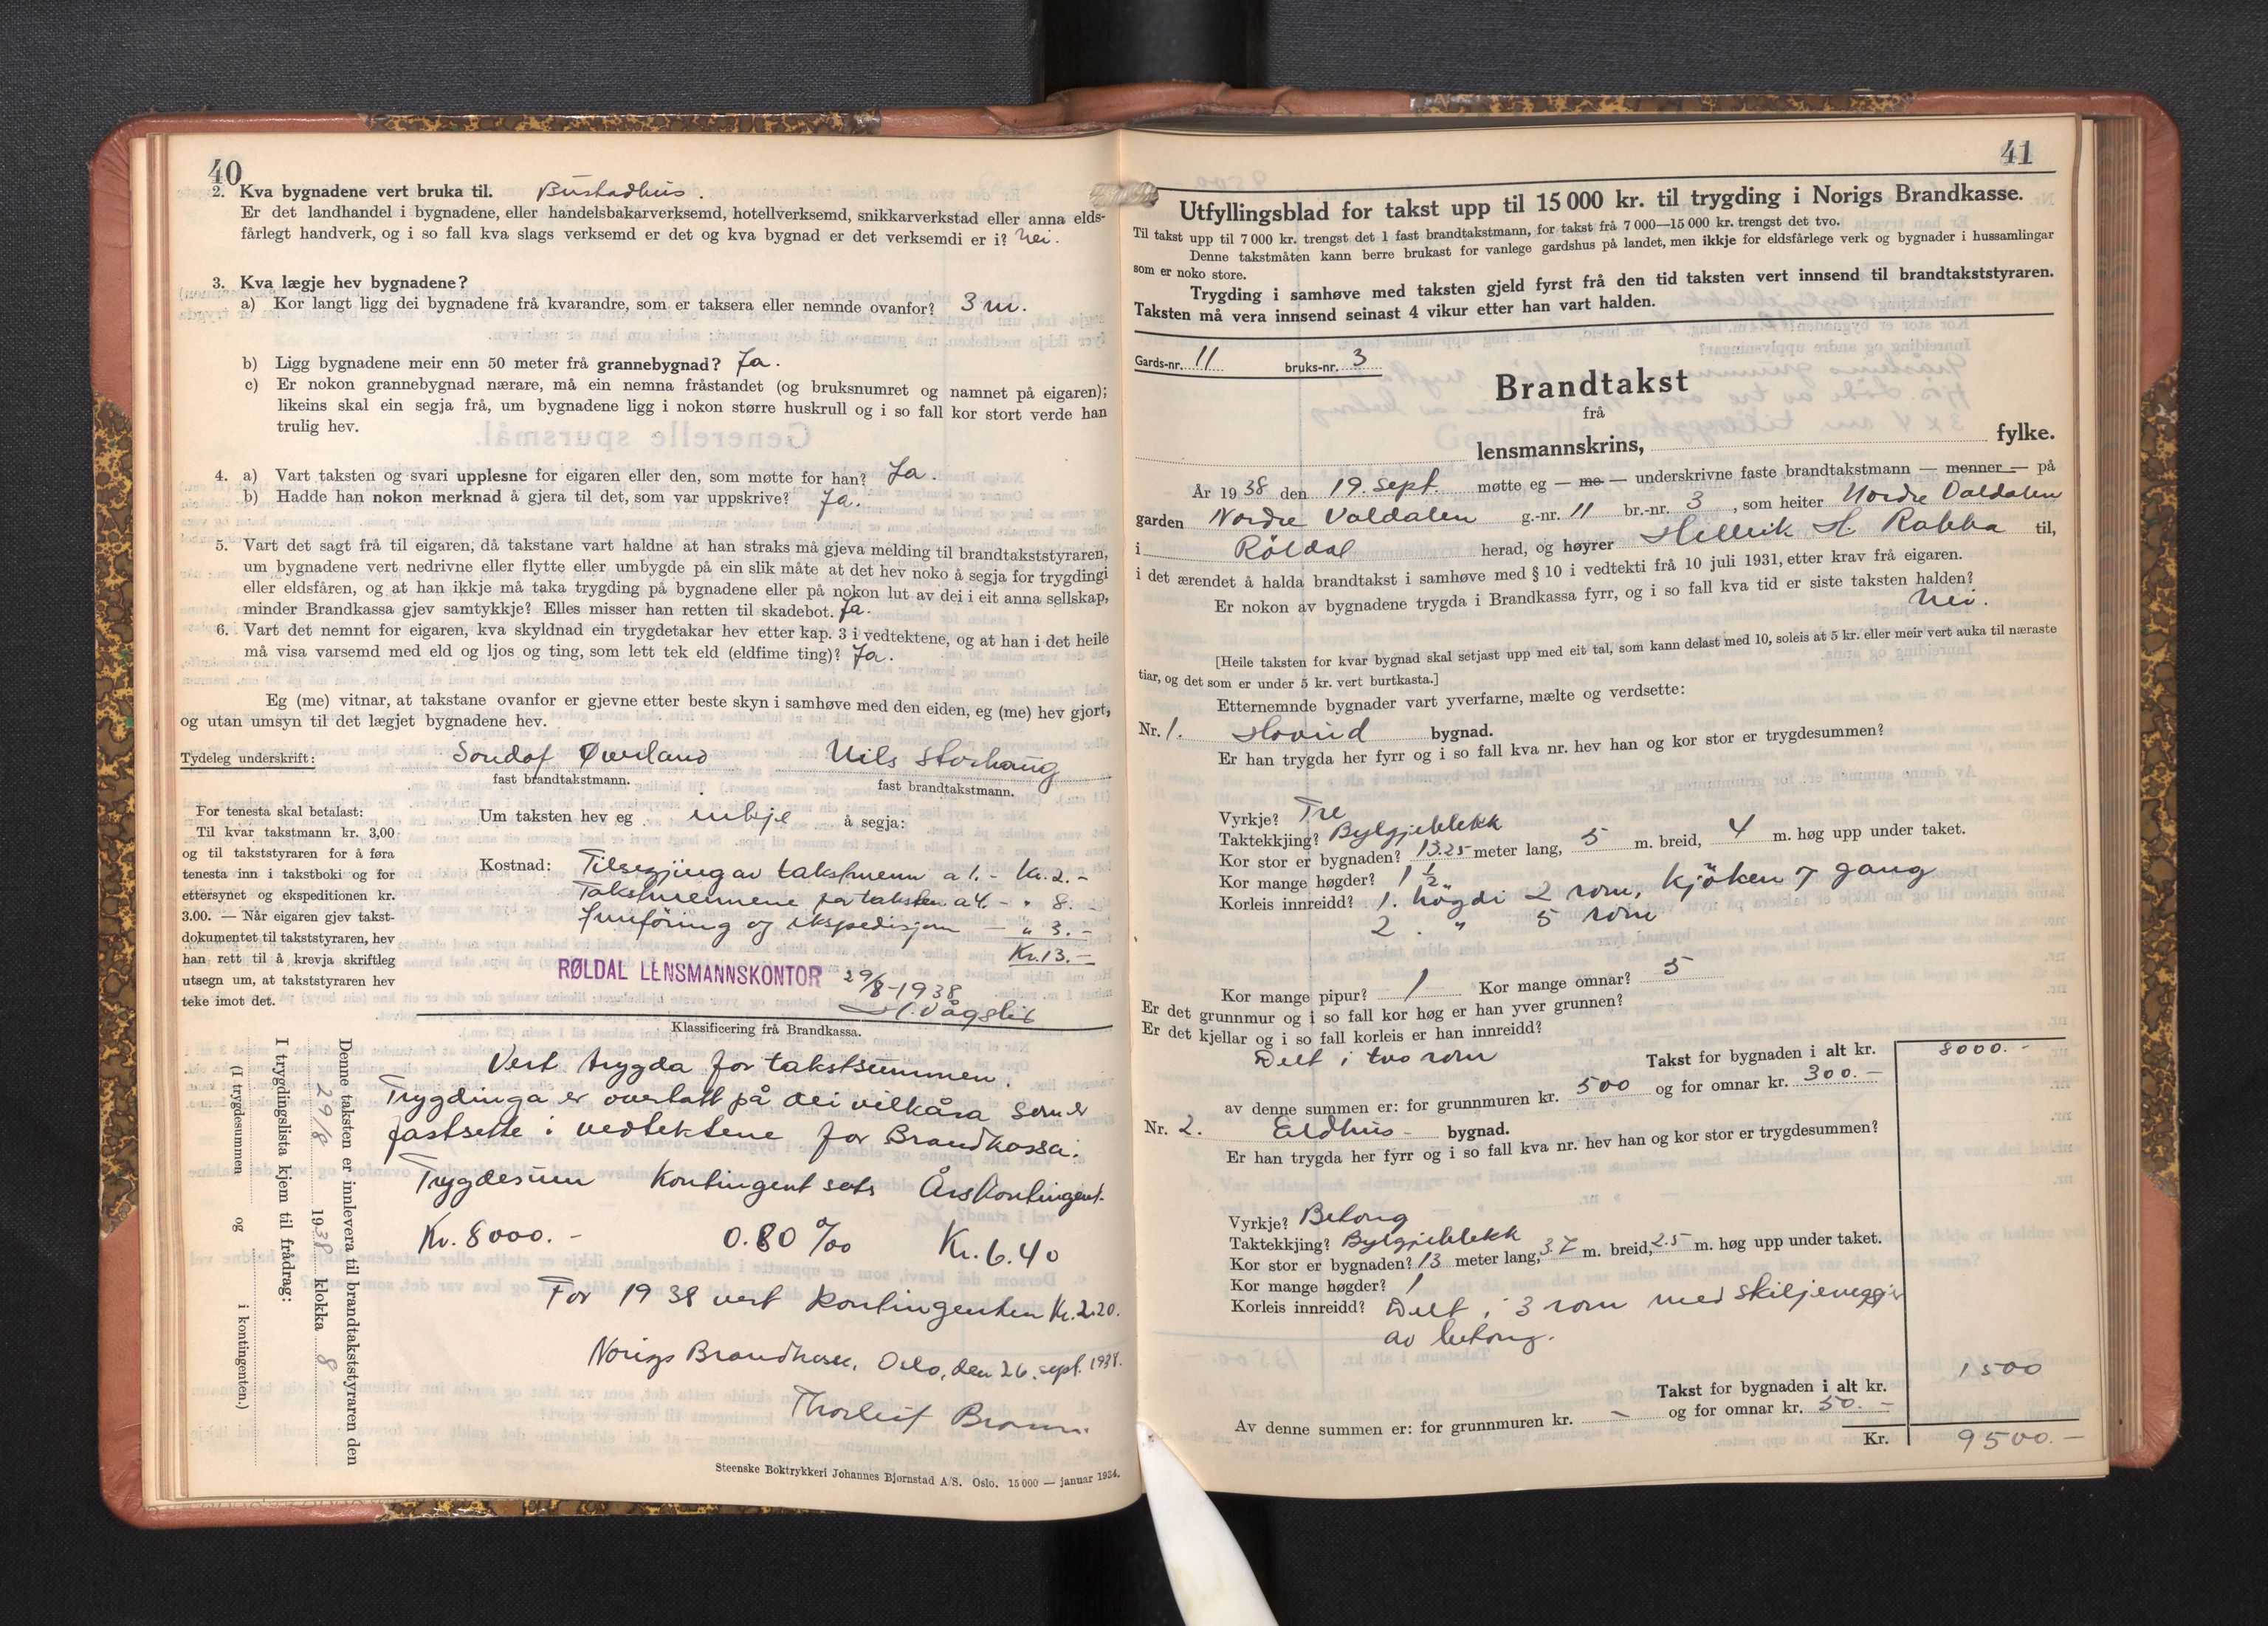 40
2. Kva bygnadene vert bruka til. Bustadhus.
Er det landhandel i bygnadene, eller handelsbakarverksemd, hotellverksemd, snikkarverkstad eller anna elds-
fårlegt handverk, og i so fall kva slags verksemd er det og kva bygnad er det verksemdi er i? Nei.
3. Kva lægje hev bygnadene?
a) Kor langt ligg dei bygnadene frå kvarandre, som er taksera eller nemnde ovanfor? 3 m.
b) Ligg bygnadene meir enn 50 meter frå grannebygnad? Ja.
c) Er nokon grannebygnad nærare, må ein nemna fråstandet (og bruksnumret og namnet på eigaren);
likeins skal ein segja frå, um bygnadene ligg i nokon større huskrull og i so fall kor stort verde han
trulig hev.
4. a) Vart taksten og svari upplesne for eigaren eller den, som møtte for han? Ja.
b) Hadde han nokon merknad å gjera til det, som var uppskrive? Ja.
5. Vart det sagt frå til eigaren, då takstane vart haldne at han straks må gjeva melding til brandtakststyraren,
um bygnadene vert nedrivne eller flytte eller umbygde på ein slik måte at det hev noko å segja for trygdingi
eller eldsfåren, og at han ikkje må taka trygding på bygnadene eller på nokon lut av dei i eit anna sellskap,
minder Brandkassa gjev samtykkje? Elles misser han retten til skadebot. Ja.
6. Vart det nemnt for eigaren, kva skyldnad ein trygdetakar hev etter kap. 3 i vedtektene, og at han i det heile
må visa varsemd med eld og ljos og ting, som lett tek eld (eldfime ting)? Ja.
Eg (me) vitnar, at takstane ovanfor er gjevne etter beste skyn i samhøve med den eiden, eg (me) hev gjort,
og utan umsyn til det lægjet bygnadene hev.
Tydeleg underskrift: Sondof Øverland Nils Storhaug
fast brandtakstmann. fast brandtakstmann.
Um taksten hev eg inkje å segja:
For tenesta skal betalast:
Til kvar takstmann kr. 3,00
og til takststyraren for å føra
tenesta inn i takstboki og for
ettersynet og ekspeditionen kr.
3.00. — Når eigaren gjev takst-
dokumentet til takststyraren, hev
han rett til å krevja skriftleg
utsegn um, at takststyraren hev
teke imot det.
Kostnad: Tilsegjing av takstmenn a 1.- Kr. 2.-
Takstmennene for taksten a 4. - " 8.-
Innföring og ekspedisjon - " 3.-
Kr. 13.-
RØLDAL LENSMANNSKONTOR 29/8-1938
H. Vågslid
Klassificering frå Brandkassa.
Vert trygda for takstsummen.
Trygdinga er overlatt på dei vilkåra som er
fastsette i vedtektene for Brandkassa.
Trygdesum Kontingentsats Årskontingent
Kr. 8000.- 0.80 ‰ Kr. 6.40
For 1938 vert kontingenten Kr. 2.20.
Norigs Brandkasse, Oslo, den 26. sept. 1938.
Thorleif Bramm.
Denne taksten er innlevera til brandtakststyraren den
29/8 1938 klokka 8
I trygdingslista kjem til frådrag:
(I trygdesummen og i kontingenten.)
Steenske Boktrykkeri Johannes Bjørnstad A/S. Oslo. 15 000 — januar 1934.
41
Utfyllingsblad for takst upp til 15 000 kr. til trygding i Norigs Brandkasse.
Til takst upp til 7 000 kr. trengst det 1 fast brandtakstmann, for takst frå 7 000—15 000 kr. trengst det tvo.
Denne takstmåten kann berre brukast for vanlege gardshus på landet, men ikkje for eldsfårlege verk og bygnader i hussamlingar
som er noko store.
Trygding i samhøve med taksten gjeld fyrst frå den tid taksten vert innsend til brandtakststyraren.
Taksten må vera innsend seinast 4 vikur etter han vart halden.
Gards-nr. 11 bruks-nr. 3
Brandtakst
frå
lensmannskrins, fylke.
År 1938 den 19. Sept. møtte eg — me — underskrivne faste brandtakstmann — menner — på
garden Nordre Valdalen g.-nr. 11 br.-nr. 3, som heiter Nordre Valdalen
i Röldal herad, og høyrer Hellvik H. Rabba til,
i det ærendet å halda brandtakst i samhøve med § 10 i vedtekti frå 10 juli 1931, etter krav frå eigaren.
Er nokon av bygnadene trygda i Brandkassa fyrr, og i so fall kva tid er siste taksten halden?
Nei.
[Heile taksten for kvar bygnad skal setjast upp med eit tal, som kann delast med 10, soleis at 5 kr. eller meir vert auka til næraste
tiar, og det som er under 5 kr. vert burtkasta.]
Etternemnde bygnader vart yverfarne, mælte og verdsette:
Nr. 1. Hovud bygnad.
Er han trygda her fyrr og i so fall kva nr. hev han og kor stor er trygdesummen?
Vyrkje? Tre
Taktekkjing? Bylgjeblekk
Kor stor er bygnaden? 13.25 meter lang, 5 m. breid, 4 m. høg upp under taket.
Kor mange høgder? 1 ½
Korleis innreidd? 1. högdi 2 rom, kjöken 7 gang
2. " 5 rom
Kor mange pipur? 1 Kor mange omnar? 5
Er det grunnmur og i so fall kor høg er han yver grunnen?
Er det kjellar og i so fall korleis er han innreidd?
Delt i tvo rom
Takst for bygnaden i alt kr. 8000.-
av denne summen er: for grunnmuren kr. 500 og for omnar kr. 300.-
Nr. 2. Eldhus- bygnad.
Er han trygda her fyrr og i so fall kva nr. hev han og kor stor er trygdesummen?
Vyrkje? Betong
Taktekkjing? Bylgjeblekk
Kor stor er bygnaden? 13 meter lang, 3.7 m. breid, 2.5 m. høg upp under taket.
Kor mange høgder? 1
Korleis innreidd? Delt i 3 rom med skiljevegger
av betong.
Takst for bygnaden i alt kr. 1500
Av denne summen er: for grunnmuren kr. - og for omnar kr. 50.-
Kr. 9500.-